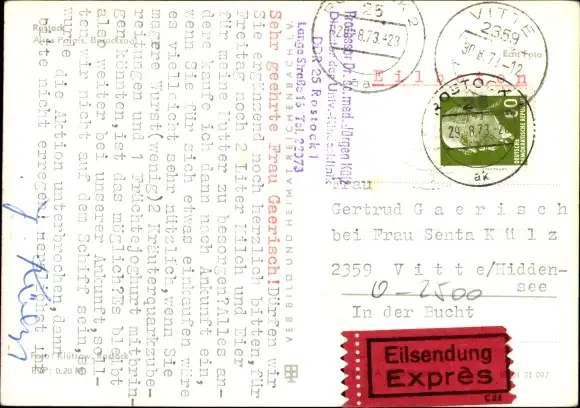 Rostock
Altes Palais, Barocksaal
Sehr geehrte Frau Gaerisch! Dürfen wir
Sie ergänzend noch herzlich bitten, für
Freitag noch 2 Liter Milch und Eier
für meine Mutter zu besorgen? Alles an-
dere kaufe ich dann nach Ankunft ein,
wenn Sie für sich etwas einkaufen wäre
es vielleicht sehr nützlich, wenn Sie
magere Wurst (wenig) 2 Kräuterquarkzube-
reitungen und 1 Früchtejoghurt mitbrin-
gen könnten, ist das möglich? Es bleibt
also weiter bei unserer Ankunft, soll-
ten wir nicht auf dem Schiff sein,
wurde die Aktion unterbrochen, dann
bitte nicht erregen! Herzlichst Ihr
Foto: Klütrow, Rostock
EVP: 0,20 M
VEB BILD UND HEIMAT REICHENBACH I. V.
Professor Dr. sc. med. Jürgen Külz
DDR 25 Rostock 1
Lange Straße 16 Tel. 22373
Echt Foto
Eilboten
VITTE
2359
30.8.73-12
ROSTOCK
29.8.73
ak
25
.8.73-23
50
DEUTSCHE
DEMOKRATISCHE REPUBLIK
Frau
Gertrud Gaerisch
bei Frau Senta Külz
2359 Vitte/Hidden-
see
0-2500
In der Bucht
Eilsendung
Exprès